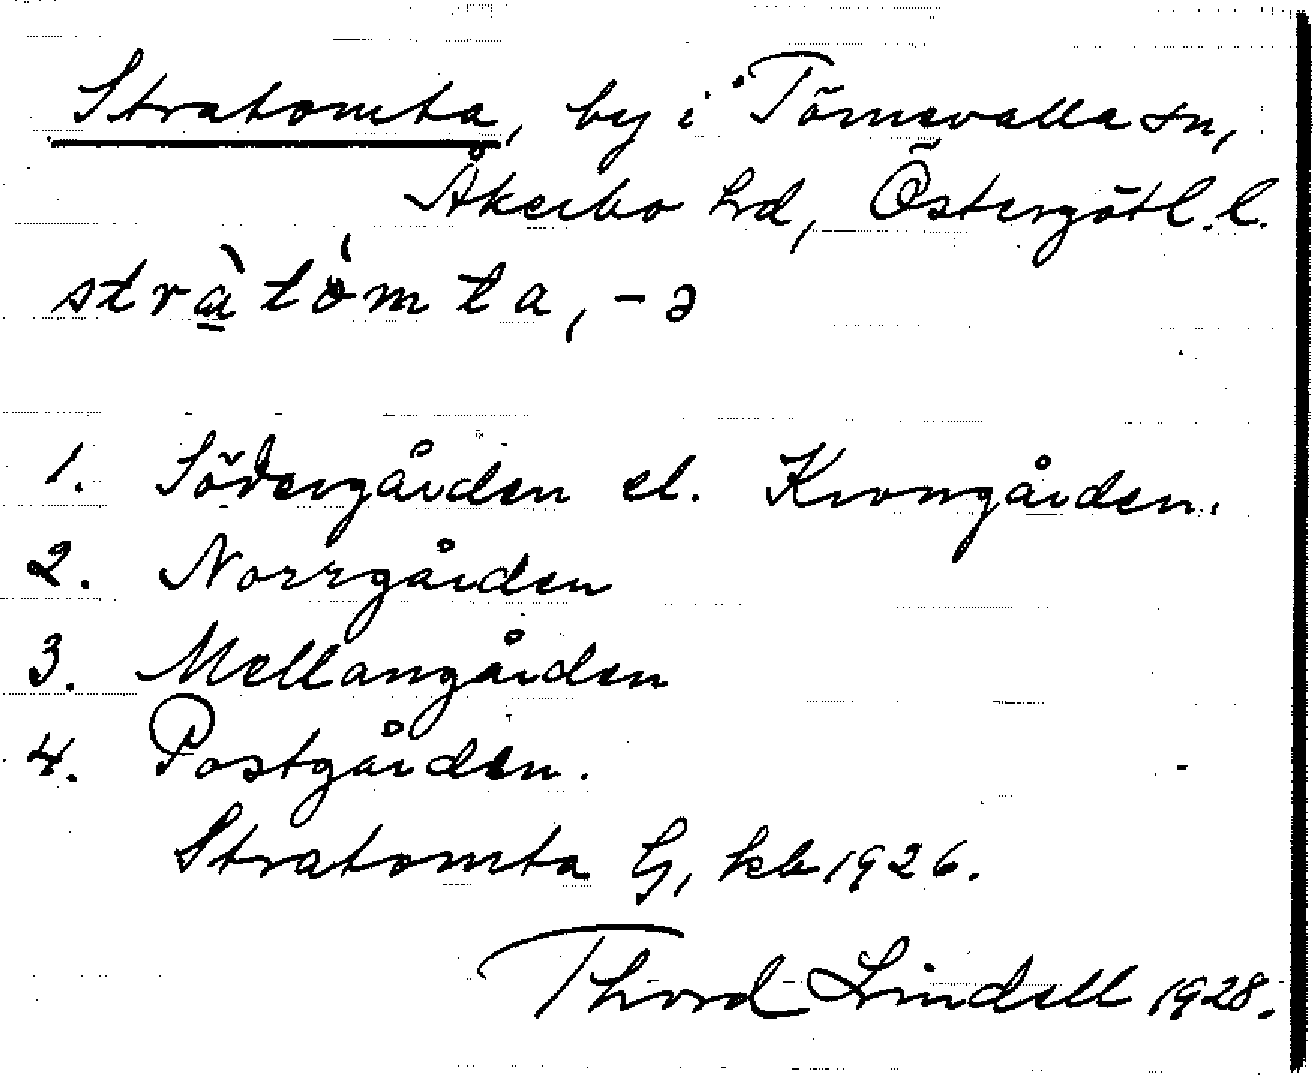 Stratomta, by i Törnevalla sn,
Åkerbo hd, Östergötl. l.
strà̱tòmta, -ə
1. Södergården el. Krongården.
2. Norrgården
3. Mellangården
4. Postgården.
Stratomta G, kb 1926.
Thord Lindell 1928.